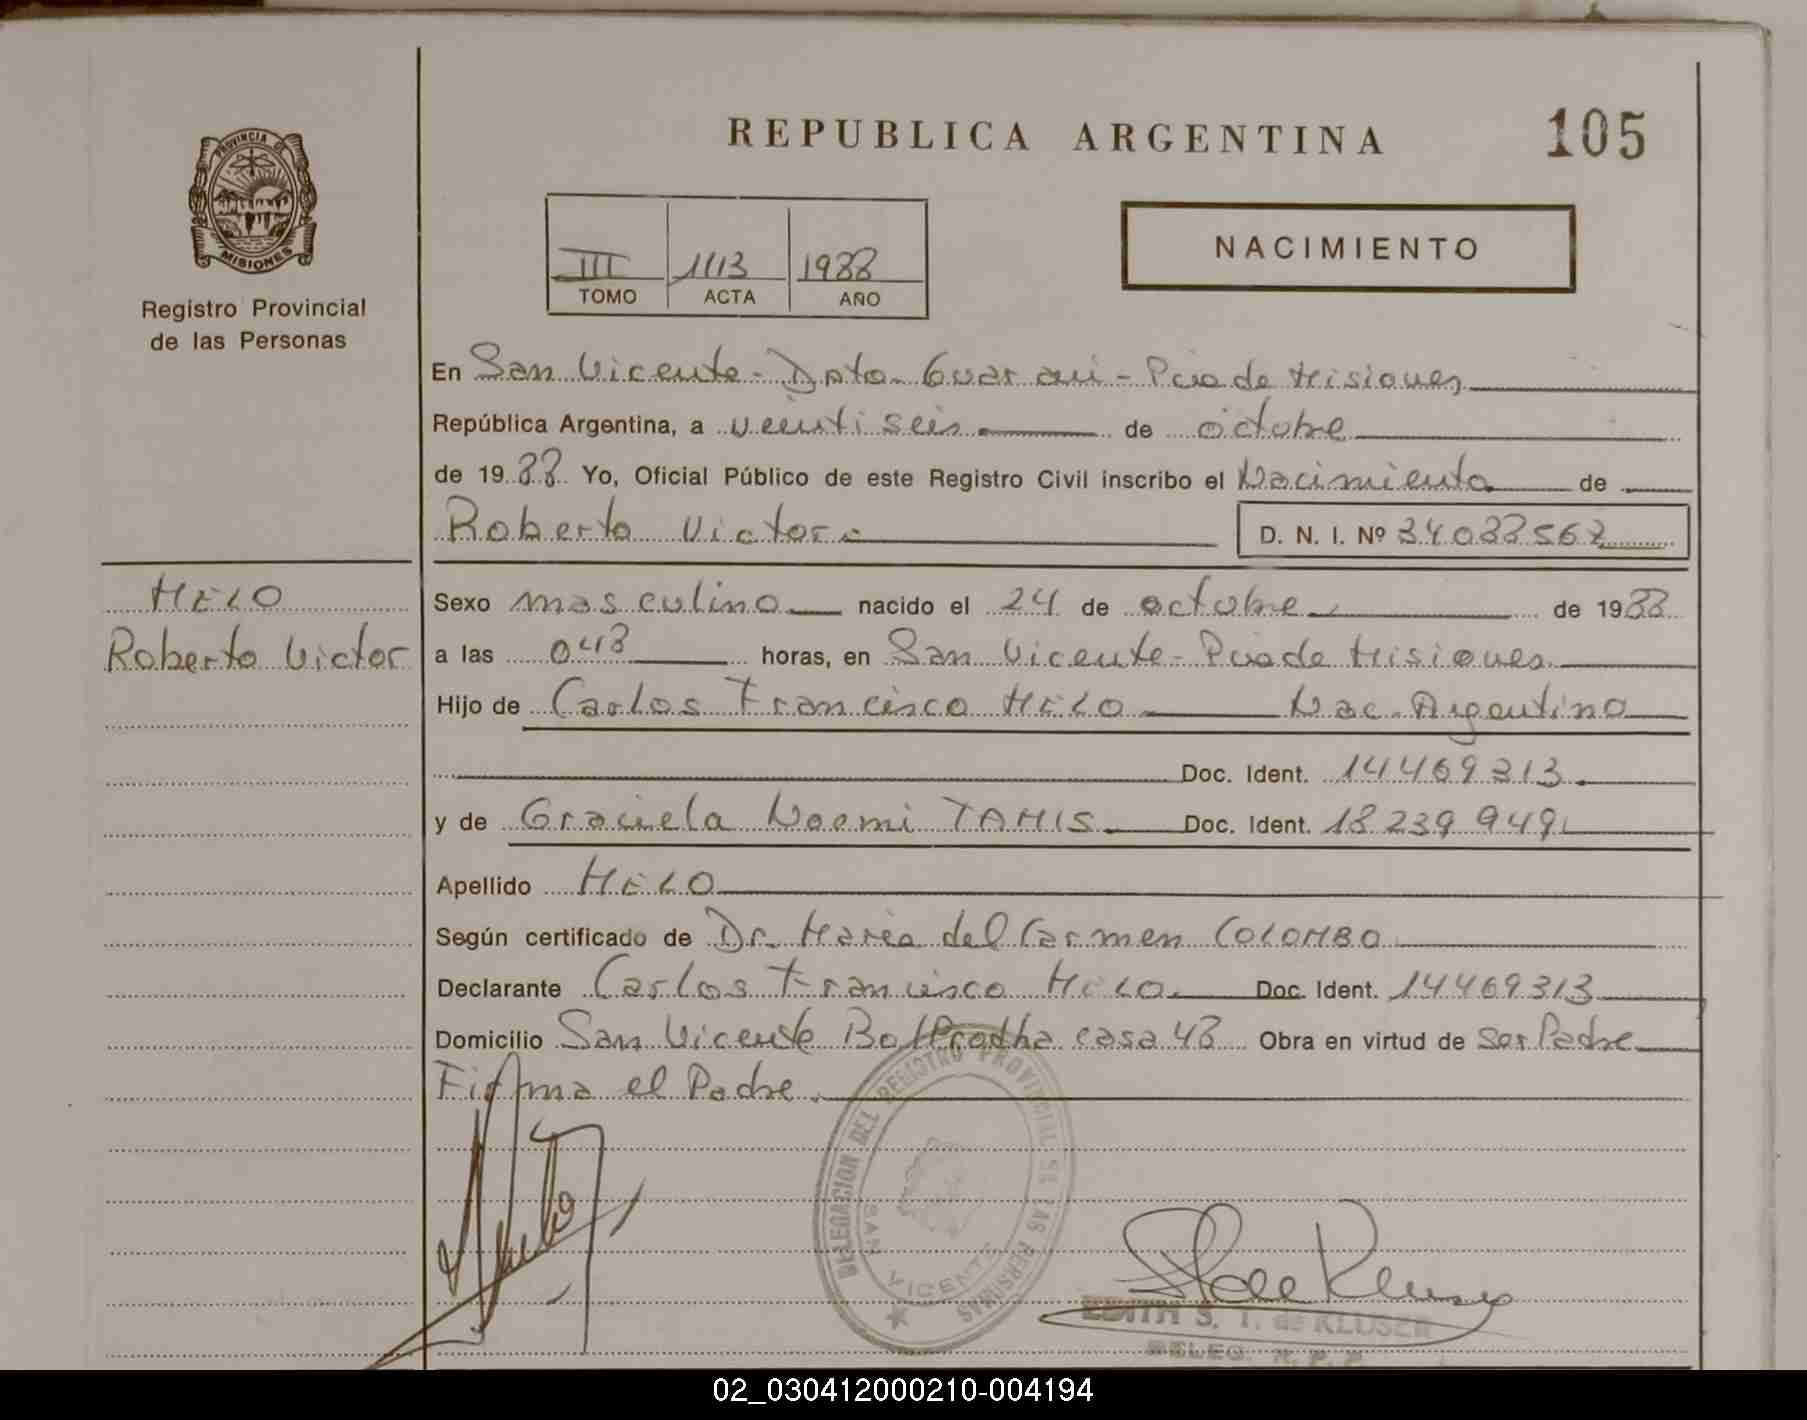 REPUBLICA ARGENTINA
105
PROVINCIA DE
MISIONES
Registro Provincial
de las Personas
III 1113 1988
TOMO ACTA AÑO
NACIMIENTO
En San Vicente - Dpto. Guarani - Pcia de Misiones
República Argentina, a veintiseis de octubre
de 1988 Yo, Oficial Público de este Registro Civil inscribo el Nacimiento de
Roberto Victor
D. N. I. Nº 34088562
MELO
Roberto Victor
Sexo masculino nacido el 24 de octubre de 1988
a las 048 horas, en San Vicente - Pcia de Misiones
Hijo de Carlos Francisco MELO Nac. Argentino
Doc. Ident. 14469313
y de Graciela Noemi TAMIS Doc. Ident. 18239949
Apellido MELO
Según certificado de Dr. Maria del Carmen COLOMBO
Declarante Carlos Francisco MELO Doc. Ident. 14469313
Domicilio San Vicente casa 48 Obra en virtud de ser Padre
Firma el Padre.
DELEGACION DEL REGISTRO PROVINCIAL DE LAS PERSONAS
SAN VICENTE
EDITH S. T. de KLUSER
DELEG. R. P. P.
02_030412000210-004194